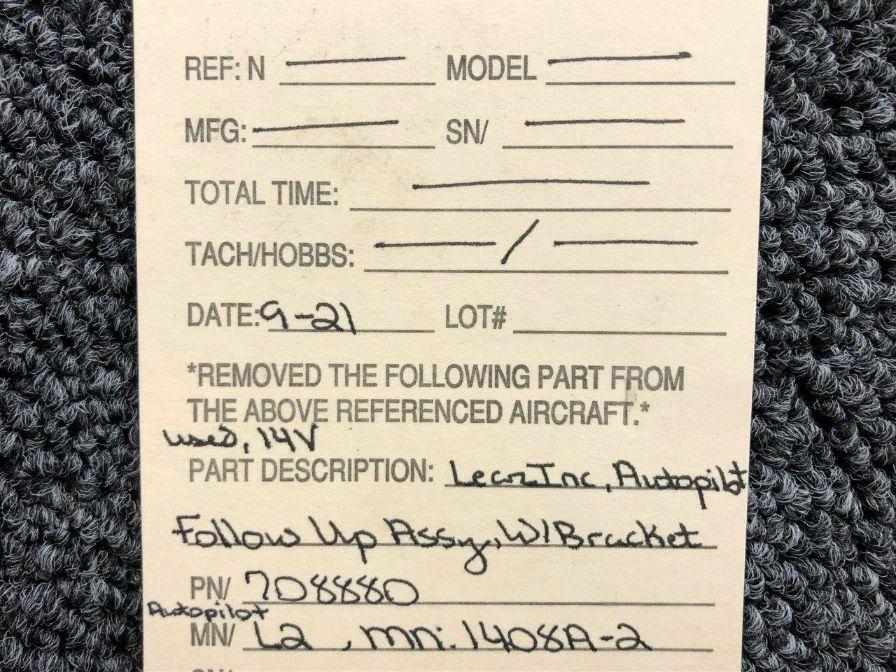 REF: N MODEL
MFG: SN/
TOTAL TIME:
TACH/HOBBS: /
DATE: 9-21 LOT#
*REMOVED THE FOLLOWING PART FROM
THE ABOVE REFERENCED AIRCRAFT.*
used, 14V
PART DESCRIPTION: Lear Inc, Autopilot
Follow Up Assy, W/Bracket
PN/ 708880
Autopilot
MN/ L2, mn: 1408A-2